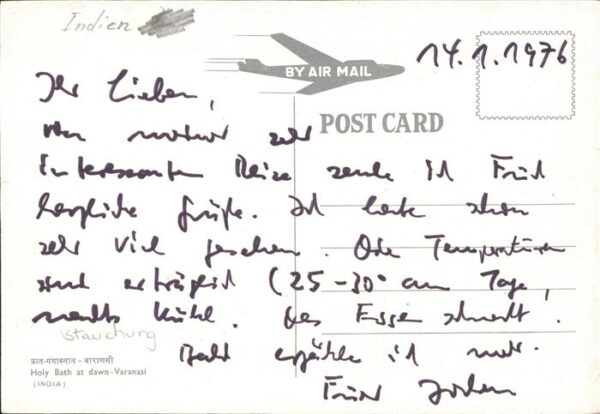 Indien
14.1.1976
BY AIR MAIL
POST CARD
Ihr Lieben,
von meiner sehr
interessanten Reise sende ich Euch
herzliche Grüße. Ich habe schon
sehr viel gesehen. Die Temperaturen
sind erträglich (25-30° am Tage,
nachts kühl. Das Essen schmeckt.
Bald erzähle ich mehr.
Euer
stauchung
प्रातः-गंगास्नान - वाराणसी
Holy Bath at dawn-Varanasi
(INDIA)